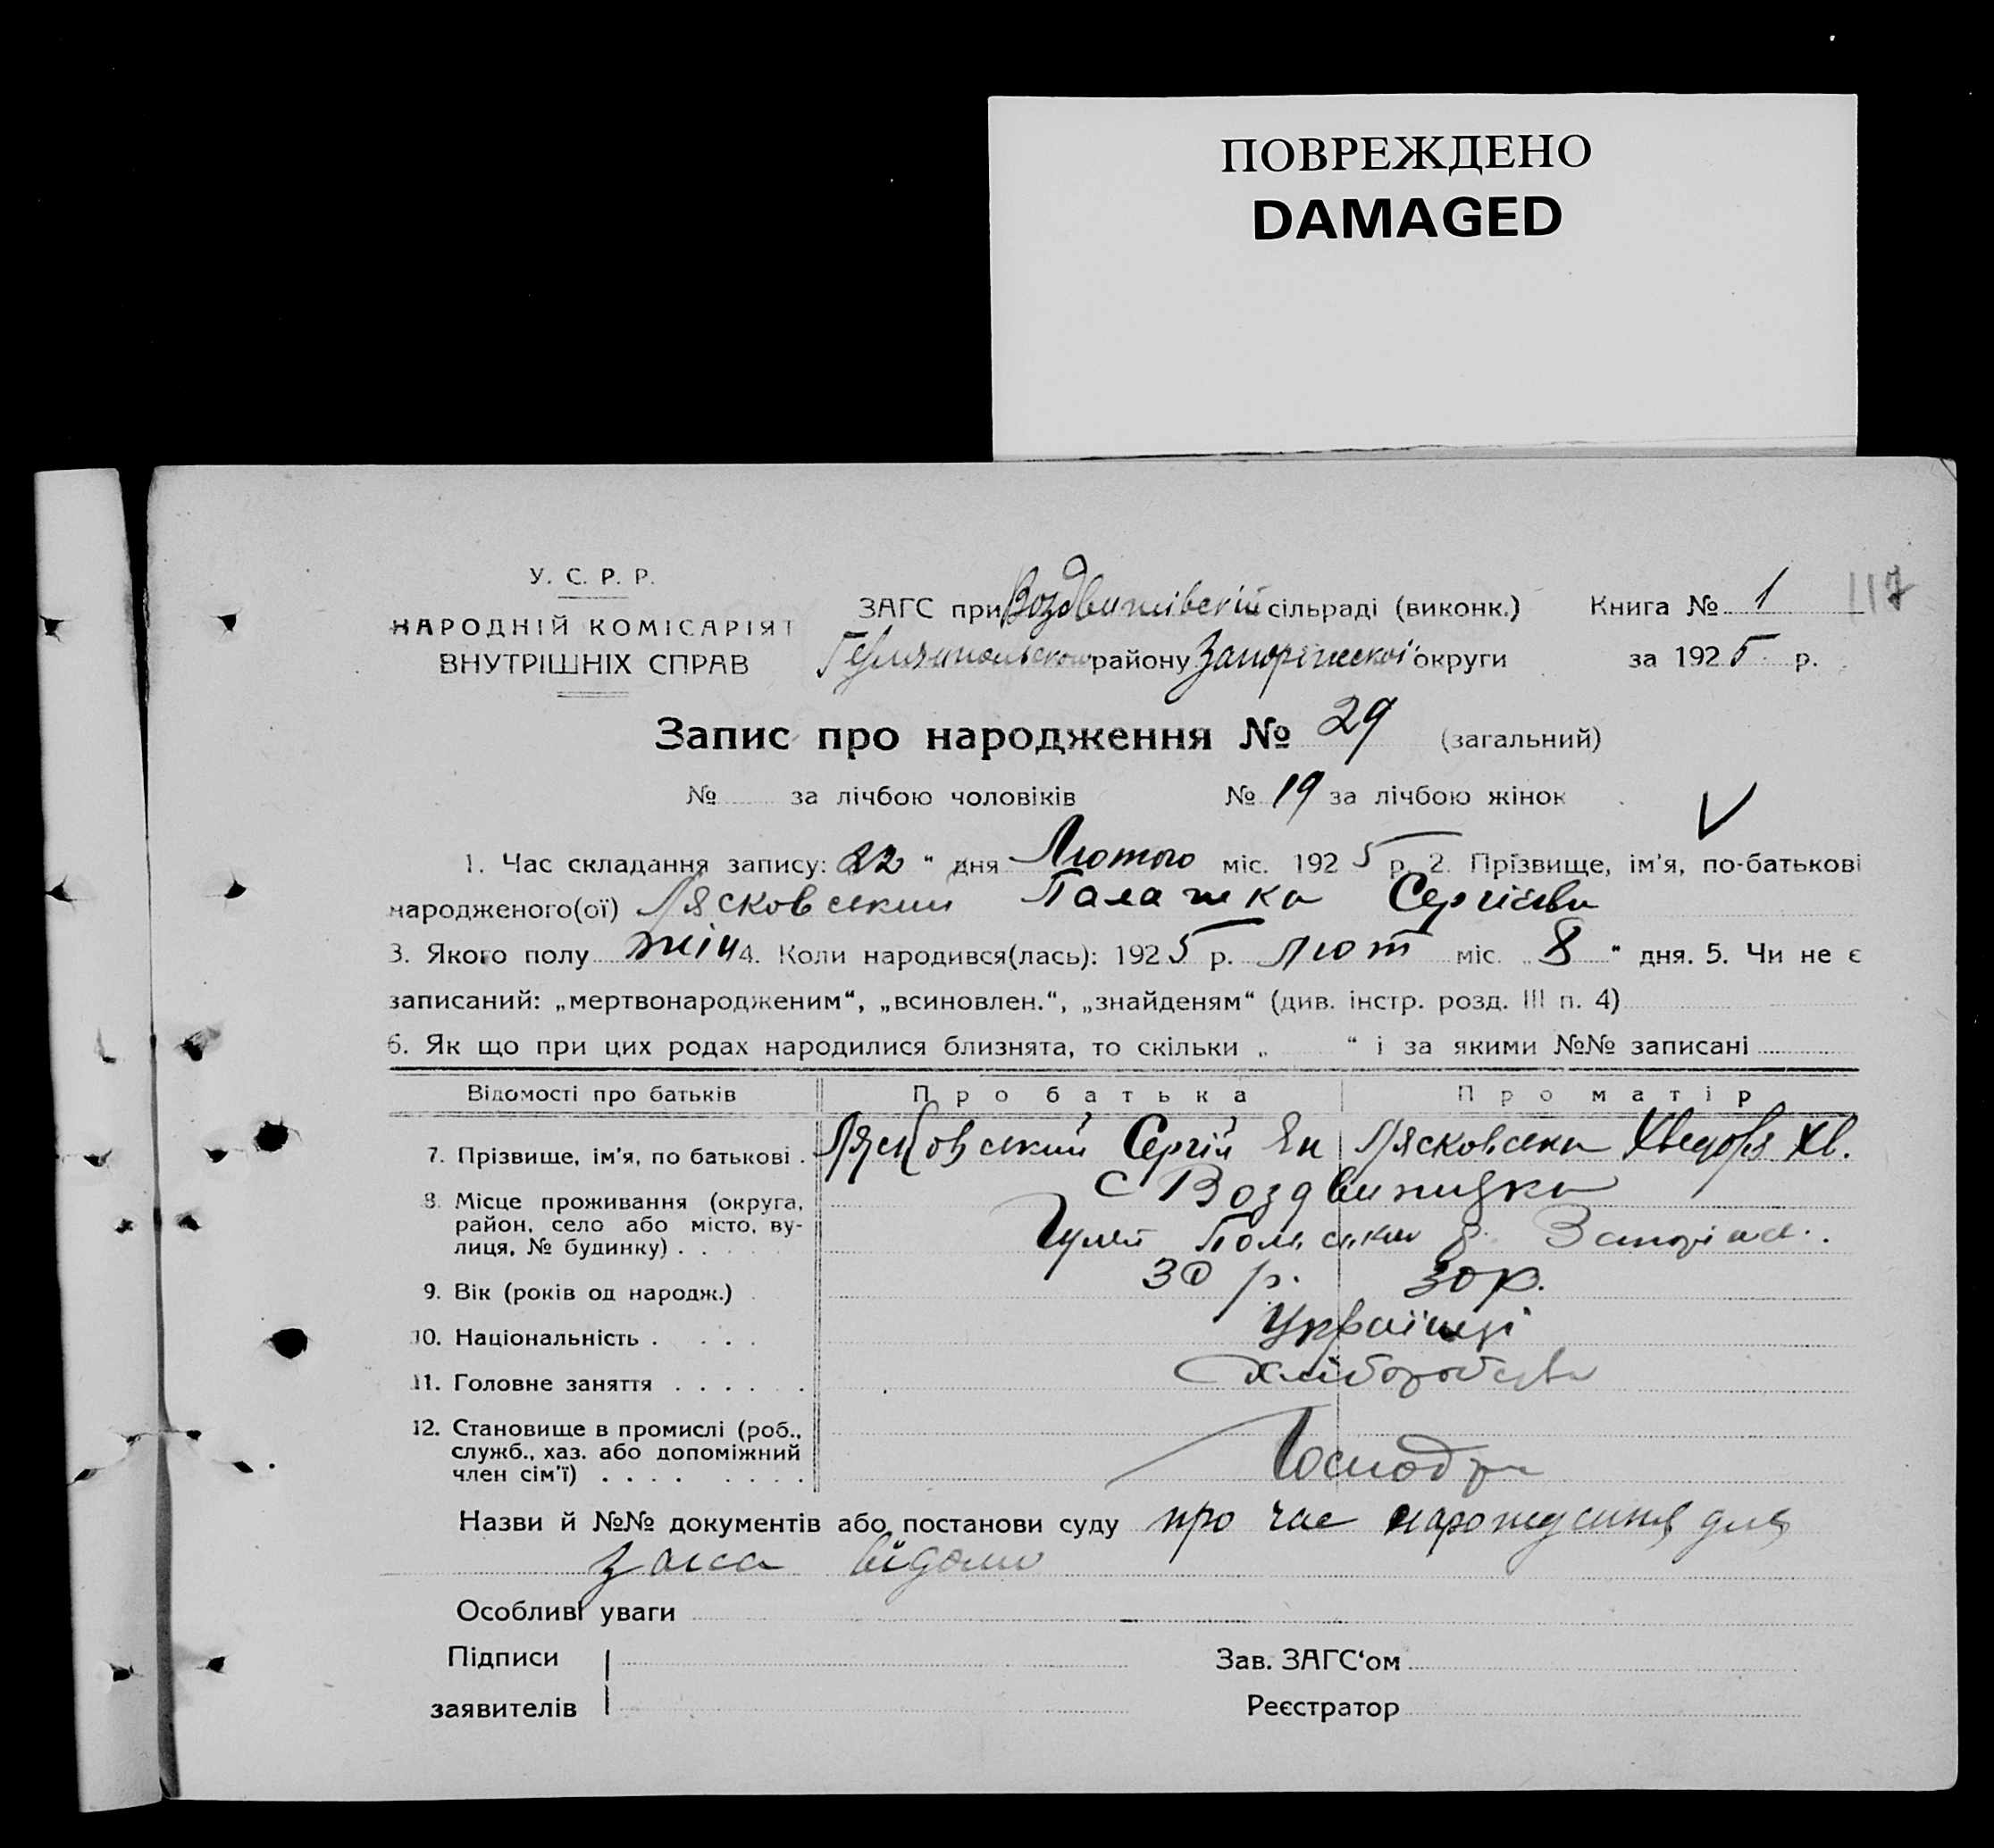 ПОВРЕЖДЕНО
DAMAGED
У. С. Р. Р.
НАРОДНІЙ КОМІСАРІЯТ
ВНУТРІШНІХ СПРАВ
ЗАГС при Воздвижівскій сільраді (виконк.)
Книга № 1
117
району Запоріжскої округи
за 1925 р.
Запис про народження № 29 (загальний)
№ за лічбою чоловіків № 19 за лічбою жінок
1. Час складання запису: 22 " дня Лютого міс. 1925 р. 2. Прізвище, ім'я, по-батькові
народженого(ої) Лясковський Палажка Сергієва
3. Якого полу жін 4. Коли народився(лась): 1925 р. лют міс. „ 8 " дня. 5. Чи не є
записаний: „мертвонародженим“, „всиновлен.“, „знайденям“ (див. інстр. розд. III п. 4)
6. Як що при цих родах народилися близнята, то скільки „ “ і за якими №№ записані
Відомості про батьків
Про батька
Про матір
7. Прізвище, ім'я, по батькові . Лясковський Сергій Як Лясковська Хведоря Хв.
8. Місце проживання (округа,
район, село або місто, ву-
лиця, № будинку) . . . . .
с Воздвижка
Гуляй Польськ р. Запоріж.
9. Вік (років од народж.) 30 р. 30 р.
10. Національність . . . . Українці
11. Головне заняття . . . . . . Хліборобство
12. Становище в промислі (роб.,
служб., хаз. або допоміжний
член сім'ї) . . . . . . . .
Господар
Назви й №№ документів або постанови суду про час народження для
загса відомо
Особливі уваги
Підписи
заявителів
Зав. ЗАГС‘ом
Реєстратор